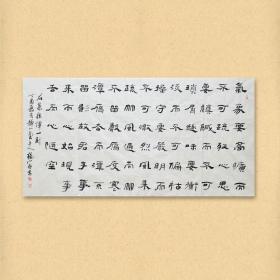 氣象要高曠而
不可疏狂心思
要縝密而不可
瑣屑趣味要衝
淡而不可偏枯
操守要嚴明而
不可激烈風來
疏竹風過而竹
不留聲雁度寒
潭雁去而潭不
留影故君子事
來而心始現事
去而心隨空